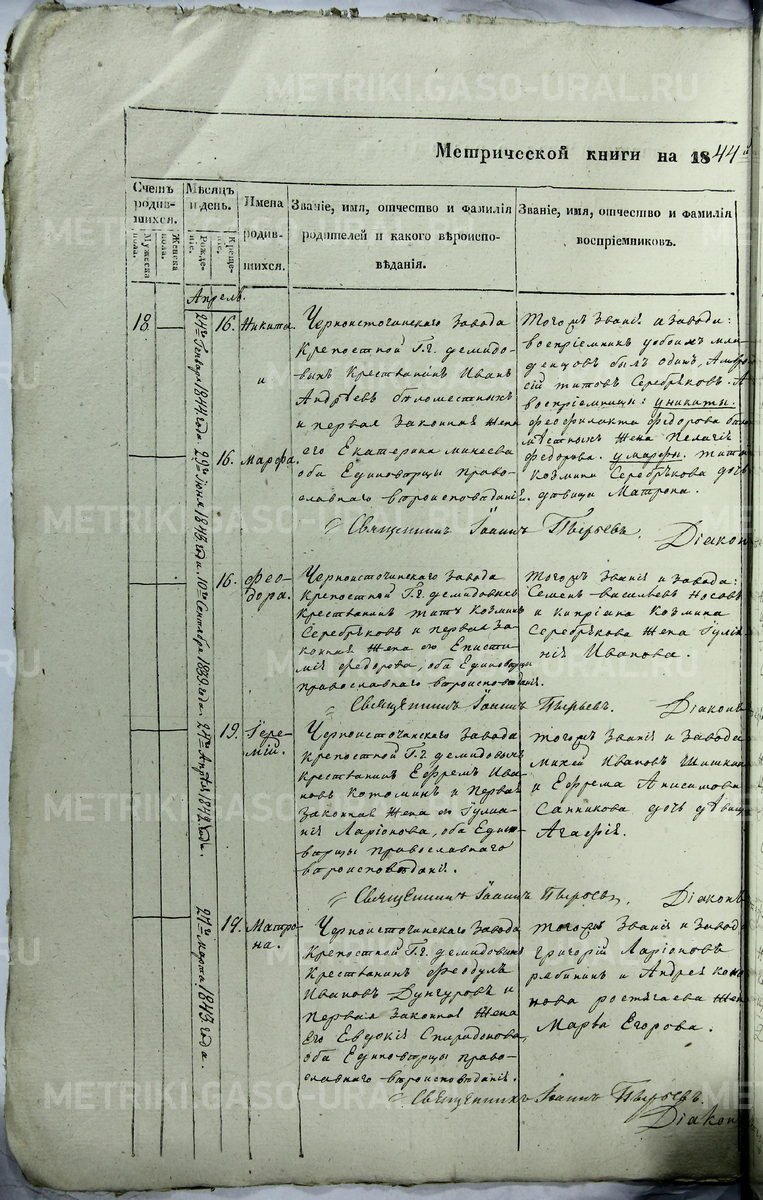 METRIKI.GASO-URAL.RU
Метрической книги на 1844й
Счетъ родив-шихся.
Мужеска пола.
Женска пола.
Мѣсяцъ и день.
Рожде-ніе.
Креще-ніе.
Имена родив-шихся.
Званіе, имя, отчество и фамилія
родителей и какого вѣроиспо-
вѣданія.
Званіе, имя, отчество и фамилія
воспріемниковъ.
Апрель.
18
24го Генваря 1844 года.
16.
Никита.
и
Черноисточинскаго завода
крепостной Г.г. демидо-
выхъ крестьянинъ Иванъ
Андрѣевъ бѣломестныхъ
и первая законная жена
его Екатерина минеева
оба Единоверцы право-
славнаго вѣроисповѣданія.
тогожъ званія и завода:
воспріемникъ уобоихъ мла-
денцовъ былъ одинъ, Амвро
сій титовъ Серебряковъ. А
воспріемницы: уникиты.
феофилакта федорова бѣло
мѣстныхъ жена Пелагія
федорова. умарфы. тита
козмина Серебрякова дочь
девица Матрона.
29го Іюня 1843 года.
16.
Марфа.
Священникъ Іоаннъ Пырьевъ.
Діаконъ
10го Сентября 1839 года.
16.
Фео-
дора.
Черноисточинскаго завода
крепостной Г.г. демидовыхъ
крестьянинъ титъ козминъ
Серебряковъ и первая за-
конная жена его Еписти-
мія федорова, оба Единоверцы
православнаго вѣроисповѣданія.
тогожъ званія и завода:
Семенъ васильевъ Носовъ
и кипріана козмина
Серебрякова жена Іулiа-
нія Иванова.
Священникъ Іоаннъ Пырьевъ.
Діаконъ
19.
Іере-
мій.
Черноисточинскаго завода
крепостной Г.г. демидовыхъ
крестьянинъ Ефремъ Ива-
новъ котоминъ и первая
законная жена его Іулiа-
нія Ларіонова, оба Едино-
верцы православнаго
вѣроисповѣданія.
тогожъ званія и завода
михей Ивановъ Шишкинъ
и Ефрема Анисимова
Санникова дочь дѣвица
Агафія.
Священникъ Іоаннъ Пырьевъ
Діаконъ
27го Марта 1843 года.
19.
Матро-
на.
Черноисточинскаго завода
крепостной Г.г. демидовыхъ
крестьянинъ феодулъ
Ивановъ Дунгуровъ и
первая законная жена
его Евдокія Спиридонова,
оба Единоверцы право-
славнаго вѣроисповѣданія.
тогожъ званія и завода
григорій Ларіоновъ
рябининъ и Андрея коно
нова ростягаева жена
Марва Егорова.
Священникъ Іоаннъ Пырьевъ.
Діаконъ